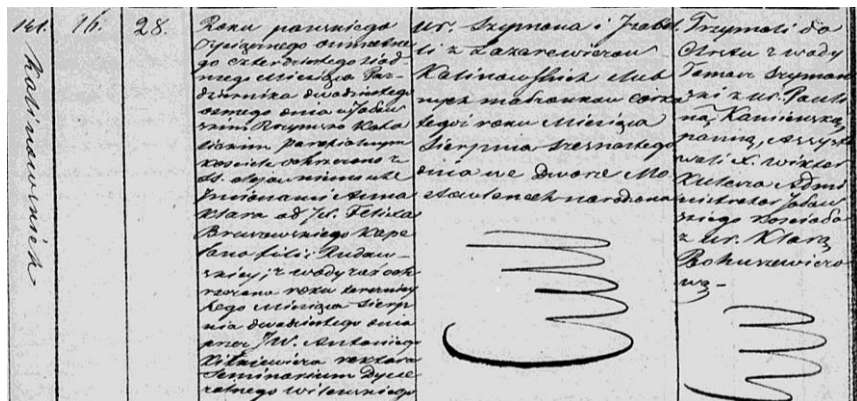 161.
Kalinowskich
16.
28.
Roku pańskiego
Tysiącznego ośmsetne-
go czterdziestego siód-
mego Miesiąca Paź-
dziernika dwudziestego
osmego dnia w
Rzymsko Kato-
lickim Parafialnym
kościele ochrzczono z
St. oleju
imionami Anna
Klara od Jx. Felixa
wskiego kape-
lana filii Rudaw-
skiej, z wody zaś och-
rzczona roku teraźniej-
szego Miesiąca Sierp-
nia dwudziestego dnia
przez JW. Antoniego
rektora
Seminarium Dyece-
zalnego wileńskiego
Ur. Szymona i Izabel-
li z Łazarewiczow
Kalinowskich slub-
nych małżonkow corka
tegoż roku Miesiąca
Sierpnia szesnastego
dnia we Dworze Mo-
narodzona
Trzymali do
Chrztu z wody
Tomasz Szyman-
ski z ur. Pauli-
ną Kamienską
panną, Assysto-
wali X. Wiktor
Admi-
nistrator
skiego kościoła
z ur. Klarą
Bohuszewiczo-
wą